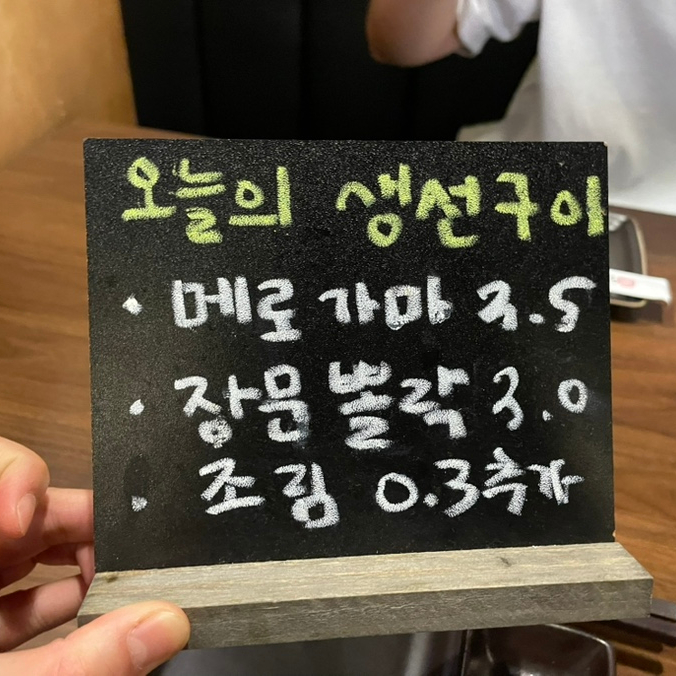 오늘의 생선구이
· 메로 가마 3.5
· 장문 뽈락 3.0
· 조림 0.3추가